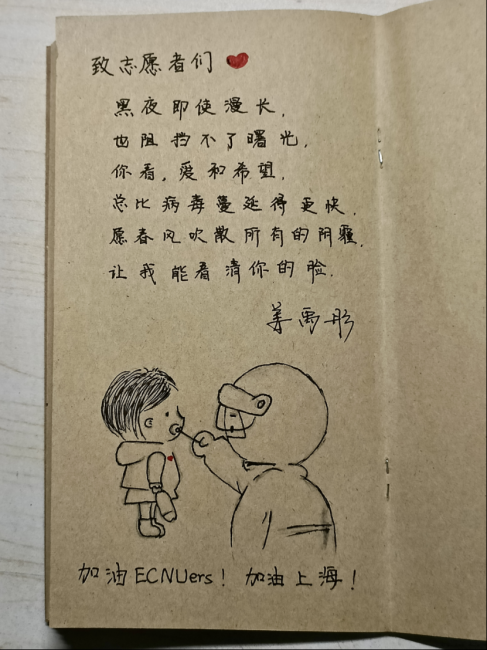 致志愿者们
黑夜即使漫长,
也阻挡不了曙光,
你看,爱和希望,
总比病毒蔓延得更快,
愿春风吹散所有的阴霾,
让我能看清你的脸.
姜禹彤
加油ECNUers! 加油上海!